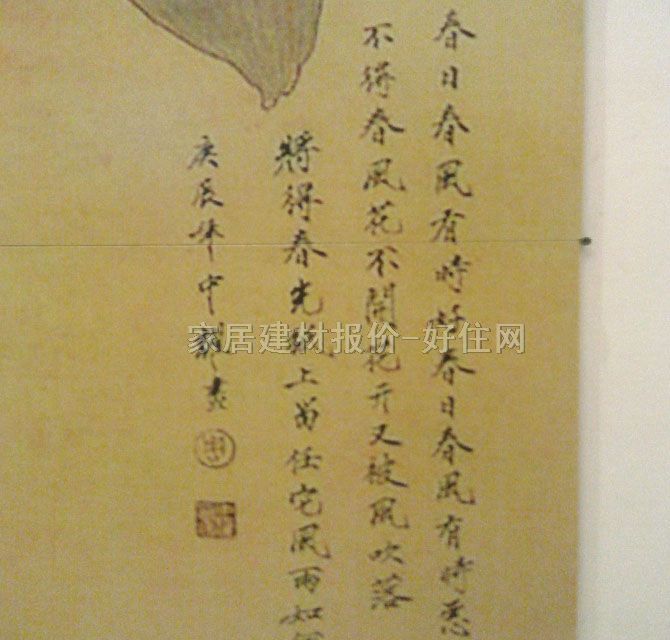 春日春風有時好春日春風有時惡
不得春風花不開花开又被風吹落
將得春光紙上留任它風雨如何
庚辰年中
家居建材报价-好住网